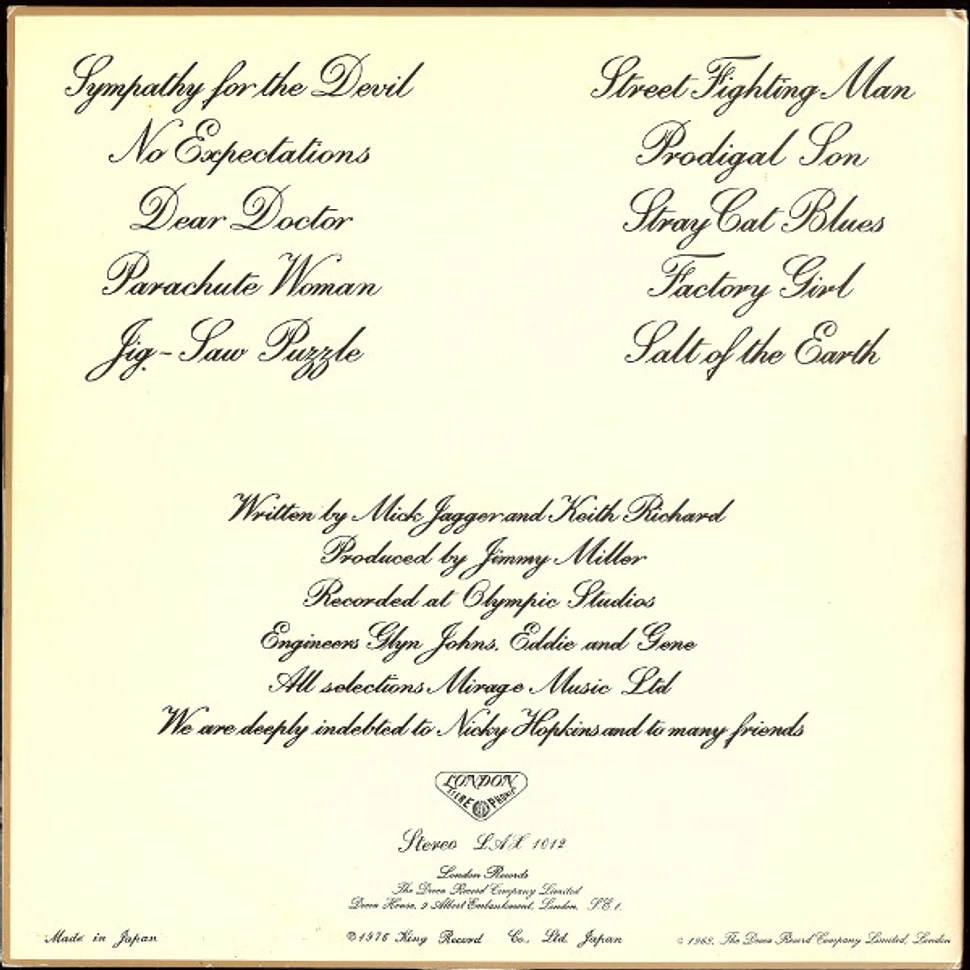 Sympathy for the Devil
No Expectations
Dear Doctor
Parachute Woman
Jig-Saw Puzzle
Street Fighting Man
Prodigal Son
Stray Cat Blues
Factory Girl
Salt of the Earth
Written by Mick Jagger and Keith Richard
Produced by Jimmy Miller
Recorded at Olympic Studios
Engineers Glyn Johns. Eddie and Gene
All selections Mirage Music Ltd
We are deeply indebted to Nicky Hopkins and to many friends
LONDON
STEREOPHONIC
Stereo LAX 1012
London Records
The Decca Record Company Limited
Decca House, 9 Albert Embankment, London, S.E.1.
Made in Japan
©1976 King Record Co., Ltd. Japan
© 1968, The Decca Record Company Limited, London